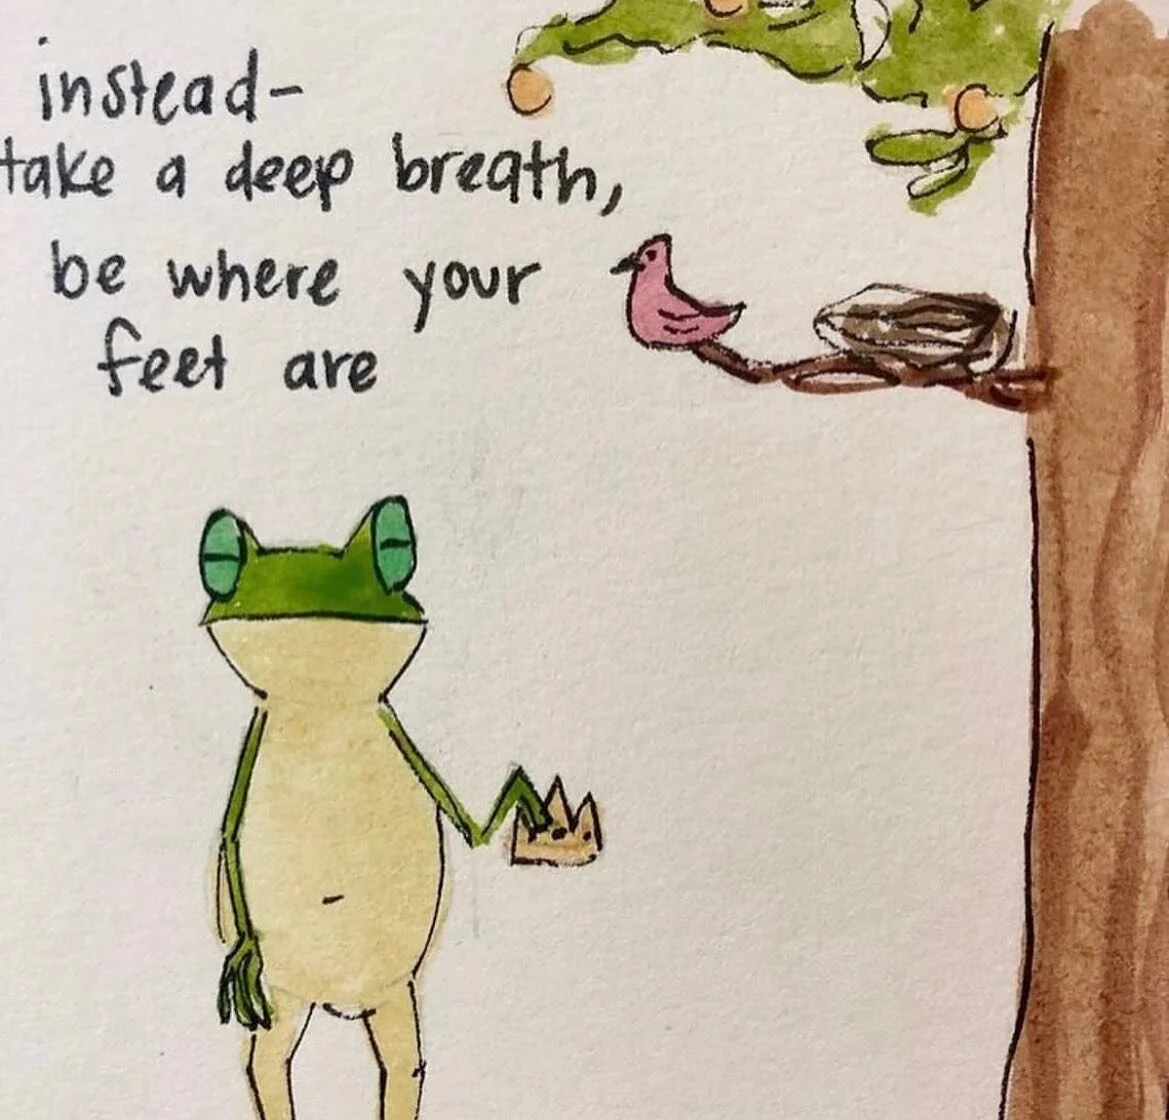 instead-
take a deep breath,
be where your
feet are